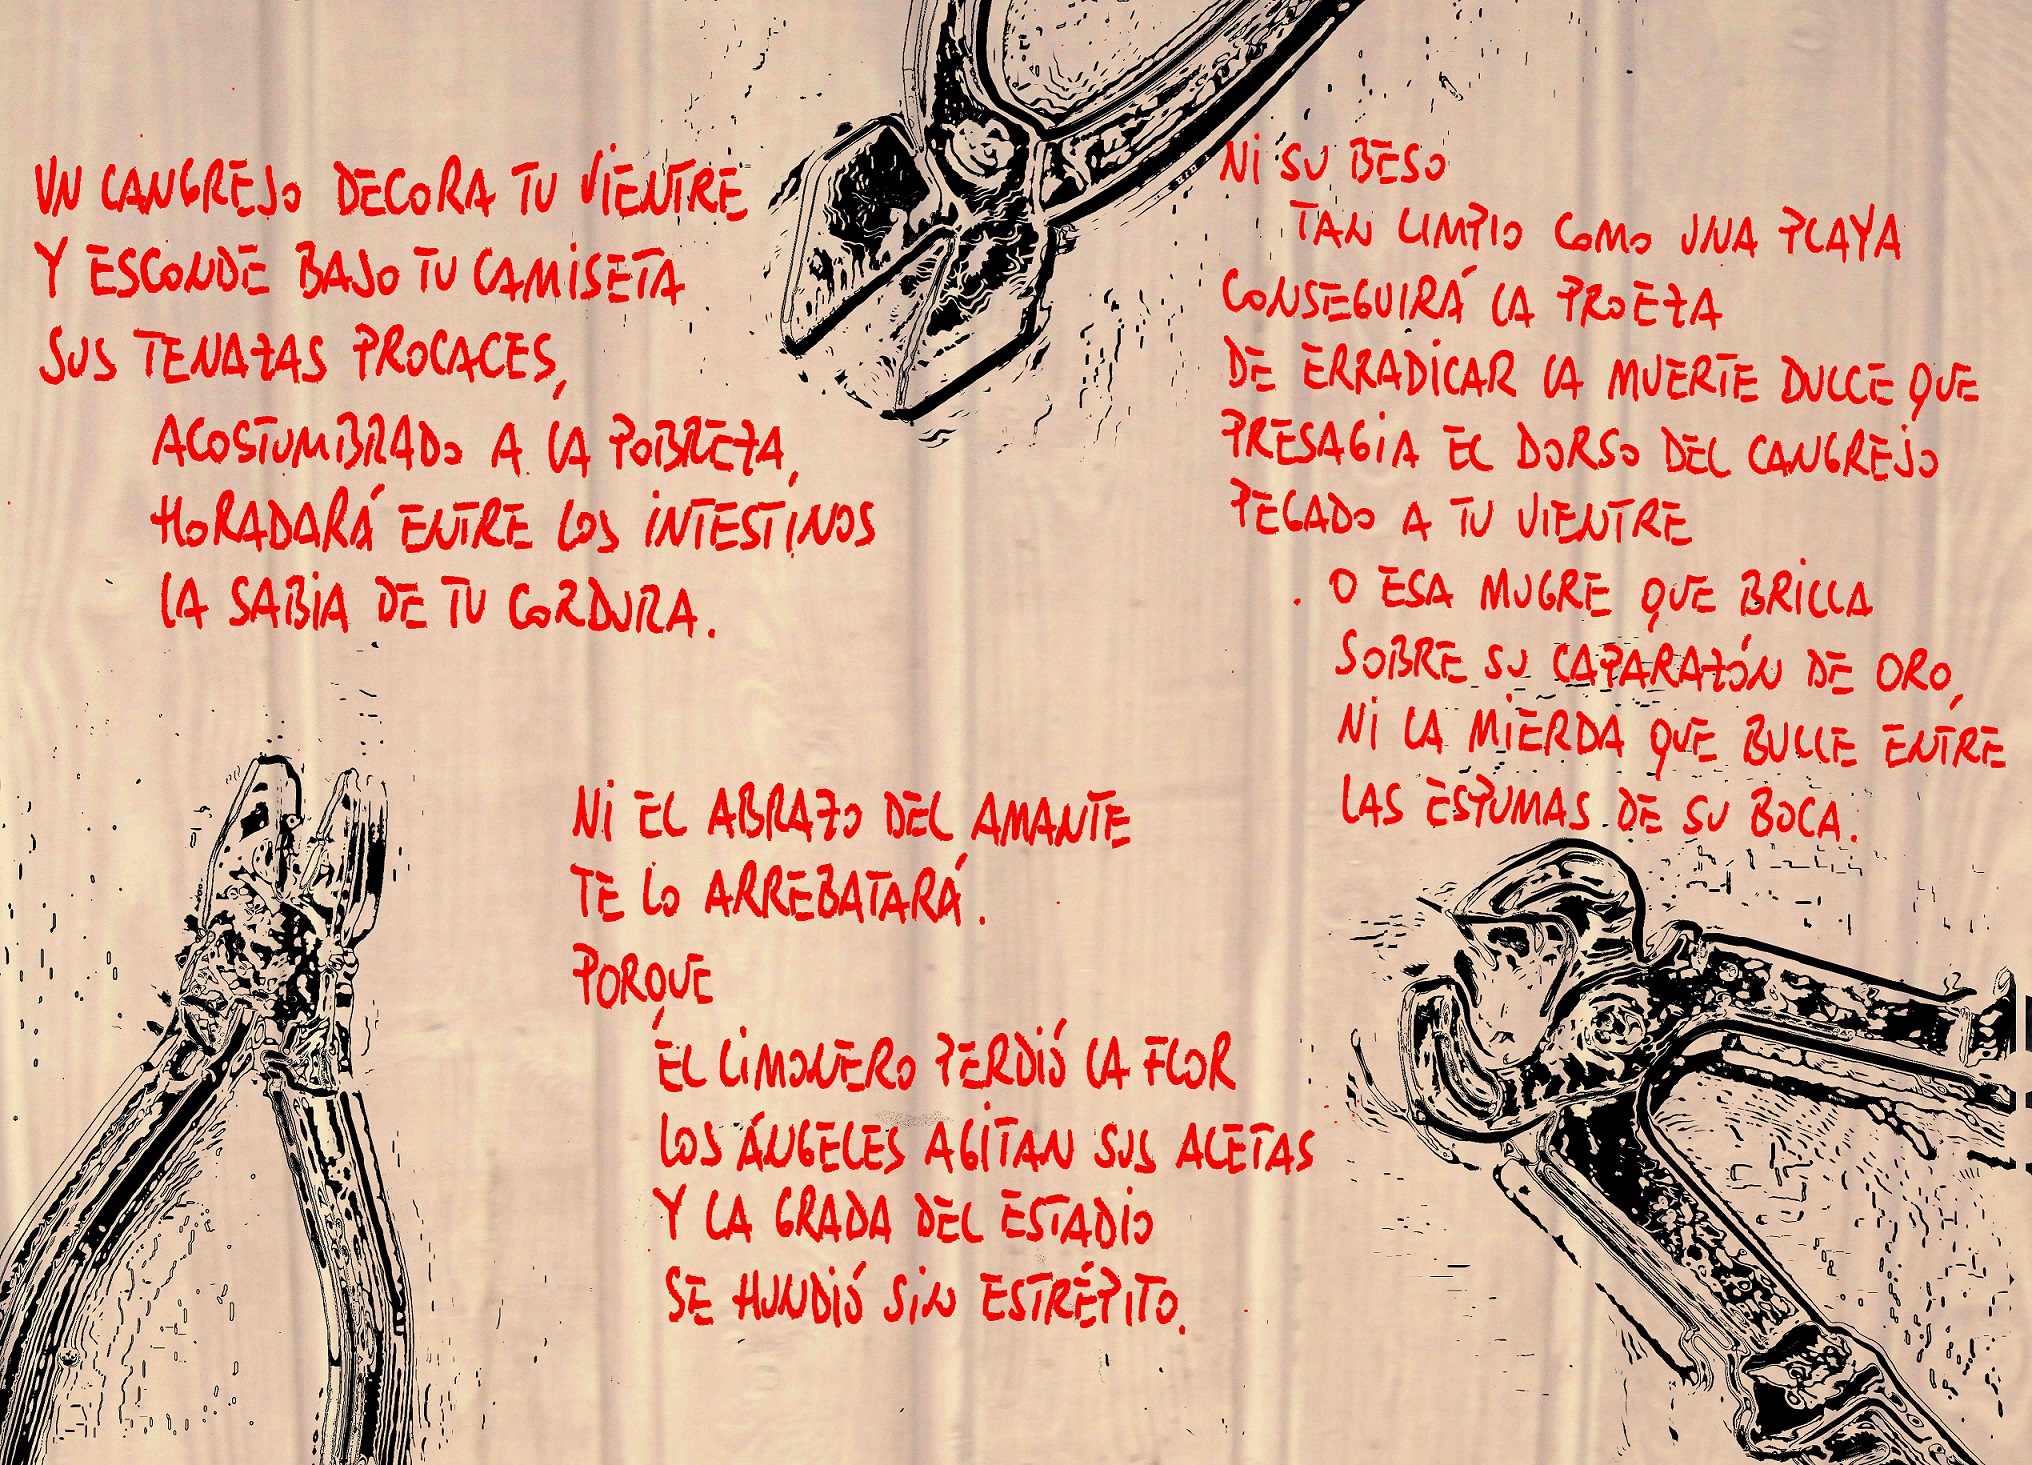 UN CANGREJO DECORA TU VIENTRE
Y ESCONDE BAJO TU CAMISETA
SUS TENAZAS PROCACES,
ACOSTUMBRADO A LA POBREZA,
HORADARÁ ENTRE LOS INTESTINOS
LA SABIA DE TU CORDURA.
NI EL ABRAZO DEL AMANTE
TE LO ARREBATARÁ.
PORQUE
EL LIMONERO PERDIÓ LA FLOR
LOS ÁNGELES AGITAN SUS ALETAS
Y LA GRADA DEL ESTADIO
SE HUNDIÓ SIN ESTRÉPITO.
NI SU BESO
TAN LIMPIO COMO UNA PLAYA
CONSEGUIRÁ LA PROEZA
DE ERRADICAR LA MUERTE DULCE QUE
PRESAGIA EL DORSO DEL CANGREJO
PEGADO A TU VIENTRE
O ESA MUGRE QUE BRILLA
SOBRE SU CAPARAZÓN DE ORO,
NI LA MIERDA QUE BULLE ENTRE
LAS ESPUMAS DE SU BOCA.